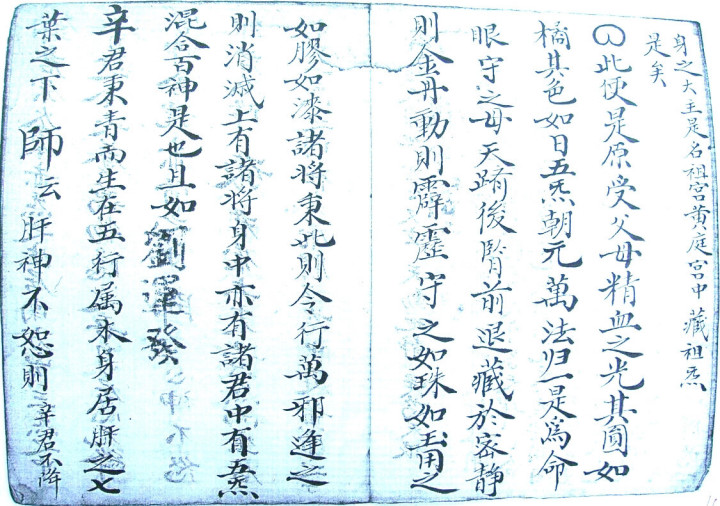 身之大主是名祖宮黄庭宫中藏祖炁
是矣
此便是原受父母精血之光其圓如
橘其色如日五炁朝元萬法归一是為命
眼守之毋天臍後腎前退藏於宻静
則金丹動則霹靂守之如珠如玉用之
如膠如漆諸將秉此則令行萬邪逢之
則消滅上有諸將身中亦有諸君中有五炁
混合百神是也且如劉運發
辛君秉青而生在五行属木身居肝之七
葉之下師云肝神不恕則辛君不降